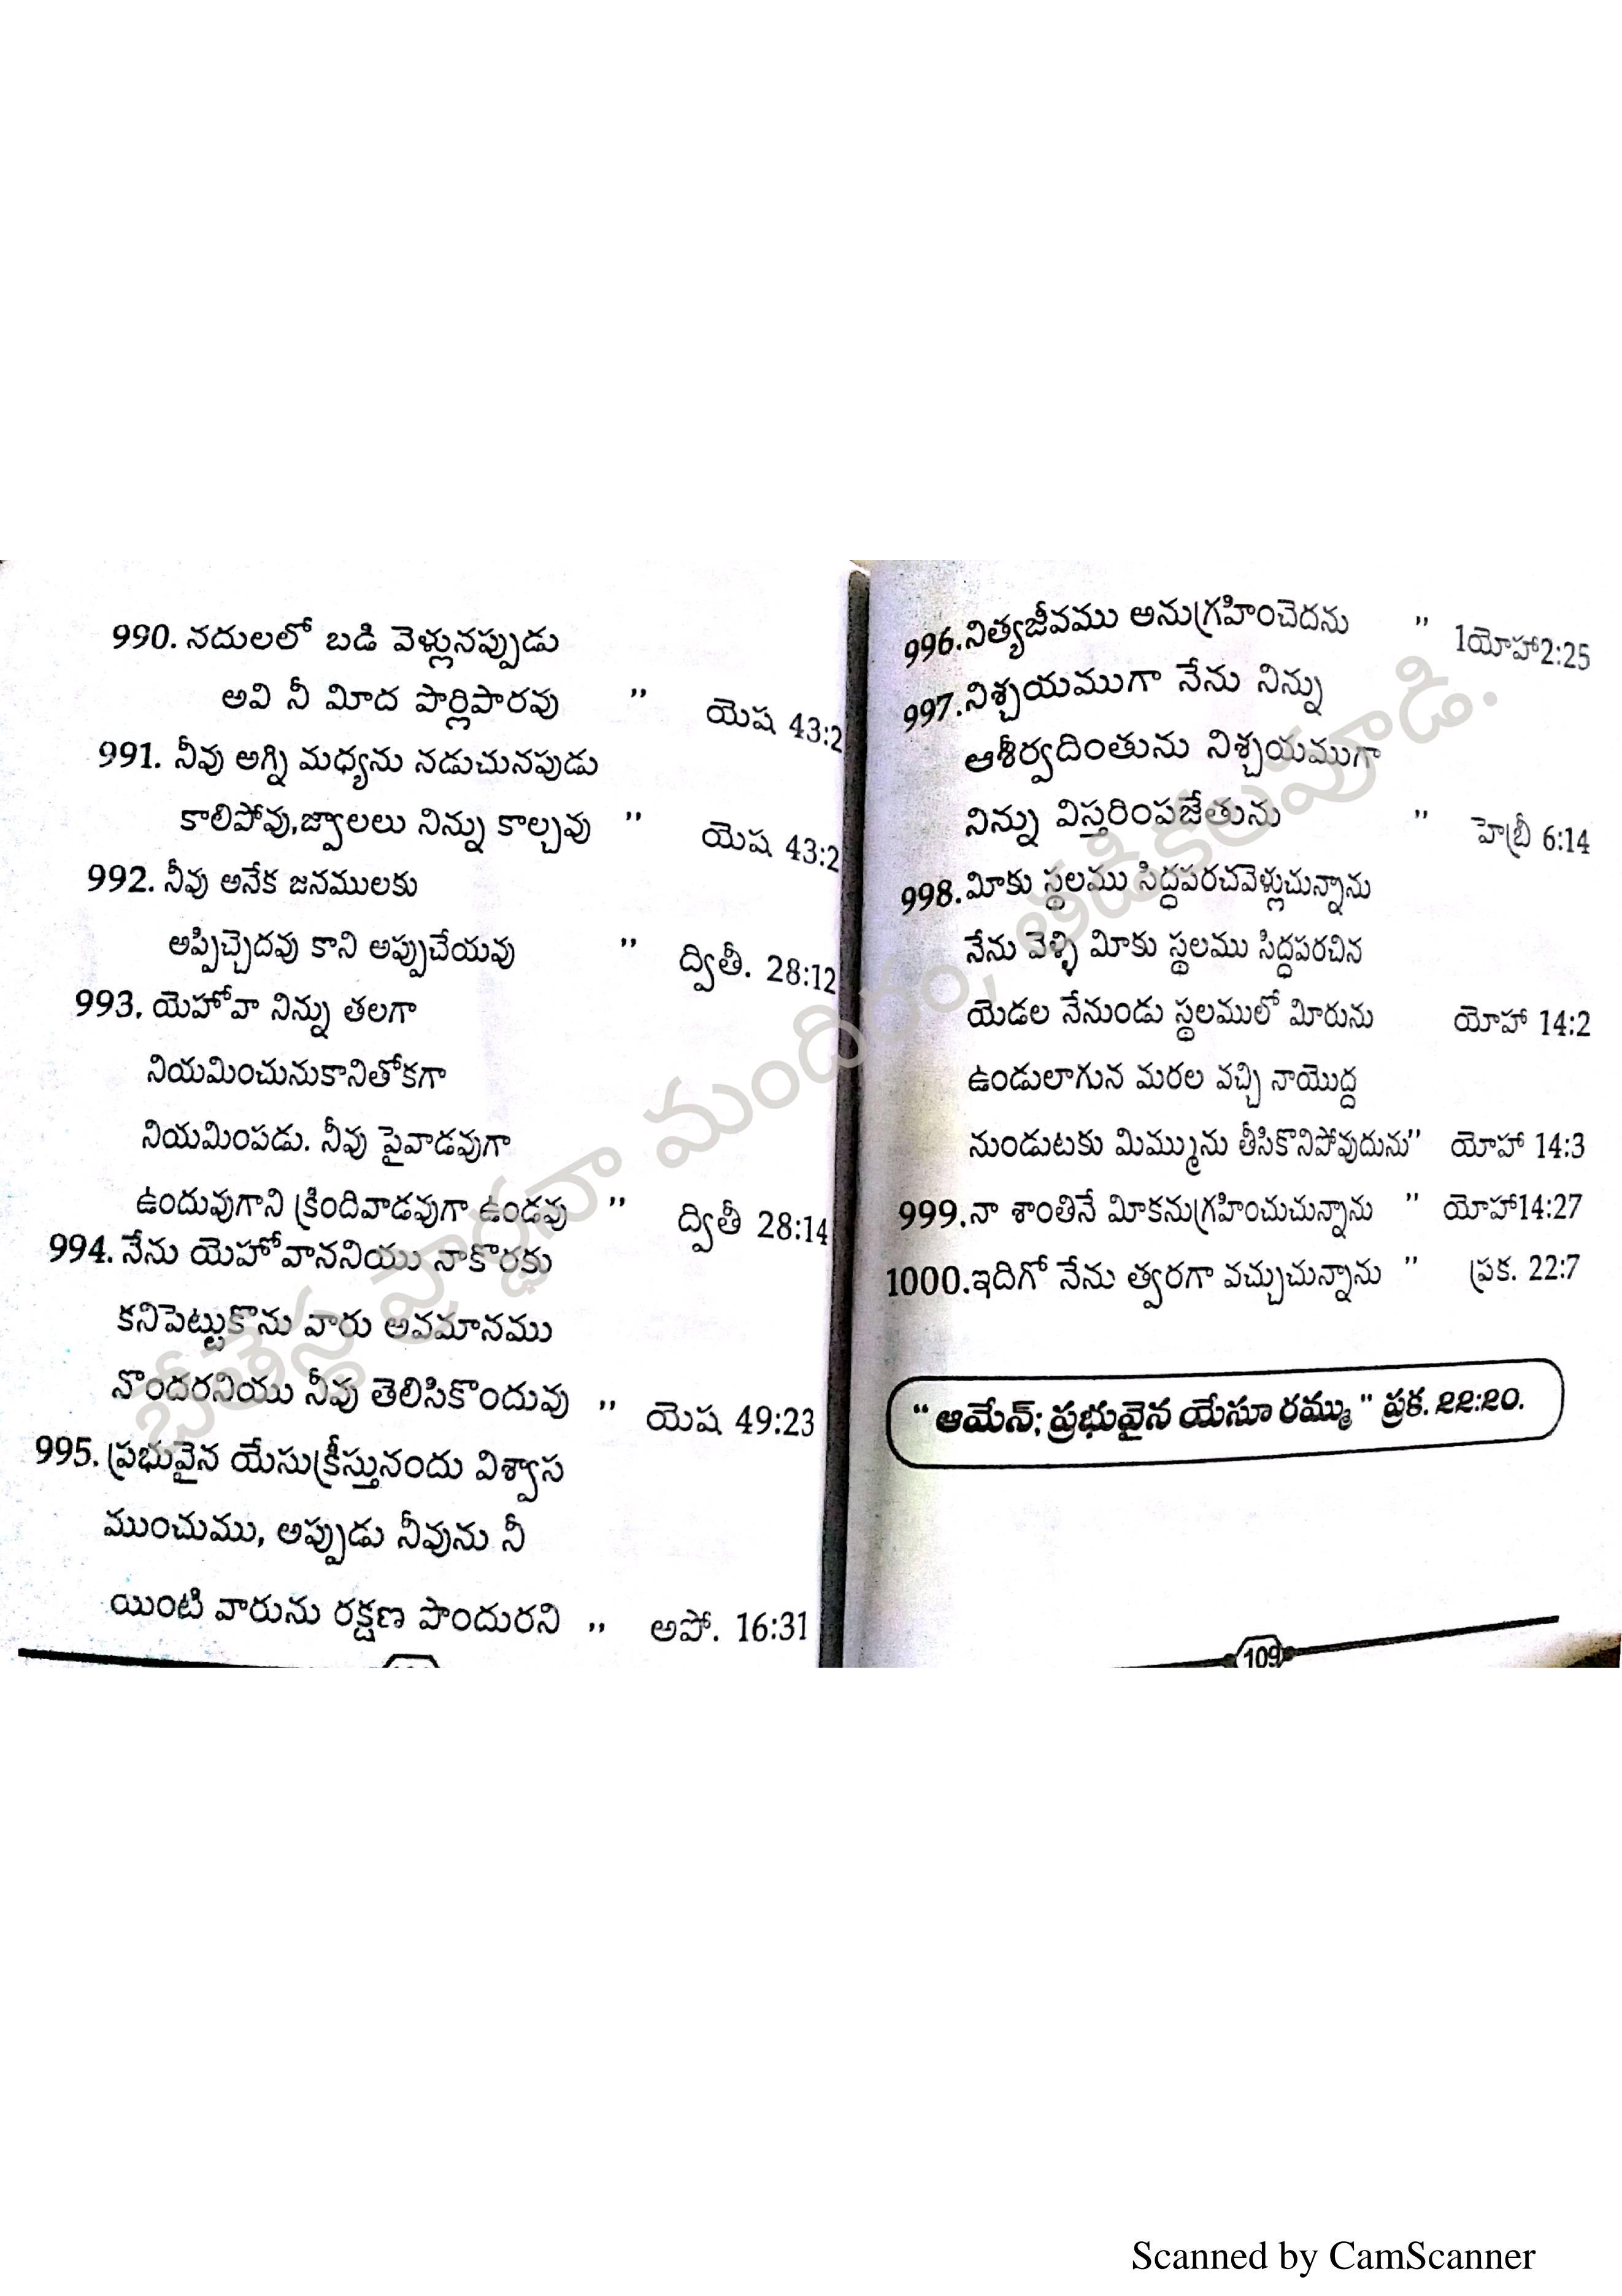 990. నదులలో బడి వెళ్లునప్పుడు
అవి నీ మీద పొర్లిపారవు " యెష 43:2
991. నీవు అగ్ని మధ్యను నడుచునపుడు
కాలిపోవు,జ్వాలలు నిన్ను కాల్చవు " యెష 43:2
992. నీవు అనేక జనములకు
అప్పిచ్చెదవు కాని అప్పుచేయవు " ద్వితీ. 28:12
993. యెహోవా నిన్ను తలగా
నియమించునుకానితోకగా
నియమింపడు. నీవు పైవాడవుగా
ఉందువుగాని క్రిందివాడవుగా ఉండవు " ద్వితీ 28:14
994. నేను యెహోవాననియు నాకొరకు
కనిపెట్టుకొను వారు అవమానము
నొందరనియు నీవు తెలిసికొందువు " యెష 49:23
995. ప్రభువైన యేసుక్రీస్తునందు విశ్వాస
ముంచుము, అప్పుడు నీవును నీ
యింటి వారును రక్షణ పొందురని " అపో. 16:31
996.నిత్యజీవము అనుగ్రహించెదను " 1యోహా2:25
997.నిశ్చయముగా నేను నిన్ను
ఆశీర్వదింతును నిశ్చయముగా
నిన్ను విస్తరింపజేతును " హెబ్రీ 6:14
998.మీకు స్థలము సిద్ధపరచవెళ్లుచున్నాను
నేను వెళ్ళి మీకు స్థలము సిద్ధపరచిన
యెడల నేనుండు స్థలములో మీరును యోహా 14:2
ఉండులాగున మరల వచ్చి నాయొద్ద
నుండుటకు మిమ్మును తీసికొనిపోవుదును" యోహా 14:3
999.నా శాంతినే మీకనుగ్రహించుచున్నాను " యోహా14:27
1000.ఇదిగో నేను త్వరగా వచ్చుచున్నాను " ప్రక. 22:7
" ఆమేన్; ప్రభువైన యేసూ రమ్ము " ప్రక. 22:20.
109
బేతెస్థ ప్రార్థనా మందిరం, తడికలపూడి.
Scanned by CamScanner